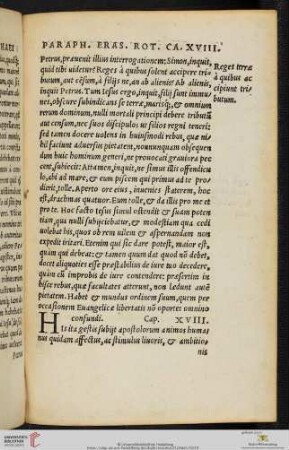 PARAPH. ERAS. ROT. CA. XVIII.
Petrus, præuenit illius interrogationem: Simon, inquit,
quid tibi uidetur? Reges à quibus solent accipere tri-
butum, aut cēsum, à filijs ne, an ab alienis? Ab alienis,
inquit Petrus. Tum Iesus ergo, inquit, filij sunt immu-
nes, obscure subindicans se terræ, marisq́;, & omnium
rerum dominum, nulli mortali principi debere tributū
aut censum, nec suos discipulos ut filios regni teneri:
sed tamen docere uolens in huiusmodi rebus, quæ ni-
hil faciunt aduersus pietatem, nonnunquam obsequen-
dum huic hominum generi, ne prouocati grauiora pec-
cent, subiecit: Attamen ne, inquit, ne simus illis offendicu
lo, abi ad mare, & eum piscem qui primus ad te pro
dierit, tolle. Aperto ore eius, inuenies staterem, hoc
est, drachmas quatuor. Eum tolle, & da illis pro me et
pro te. Hoc facto Iesus simul ostendit & suam poten
tiam, qua nulli subijciebatur, & modestiam qua cedi
uolebat his, quos ob rem uilem & aspernandam non
expedit irritari. Etenim qui sic dare potest, maior est,
quàm qui debeat: & tamen quum dat quod nō debet,
docet aliquoties esse præstabilius de iure suo decedere,
quàm cū improbis de iure contendere: præsertim in
hisce rebus, quæ facultates atterunt, non lædunt autē
pietatem. Habet & mundus ordinem suum, quem per
occasionem Euangelicæ libertatis nō oportet omnino
confundi. Cap. XVIII.
HIs ita gestis subijt apostolorum animos huma
nus quidam affectus, ac stimulus liuoris, & ambitio
nis
Reges terræ
à quibus ac
cipiunt tri
butum.